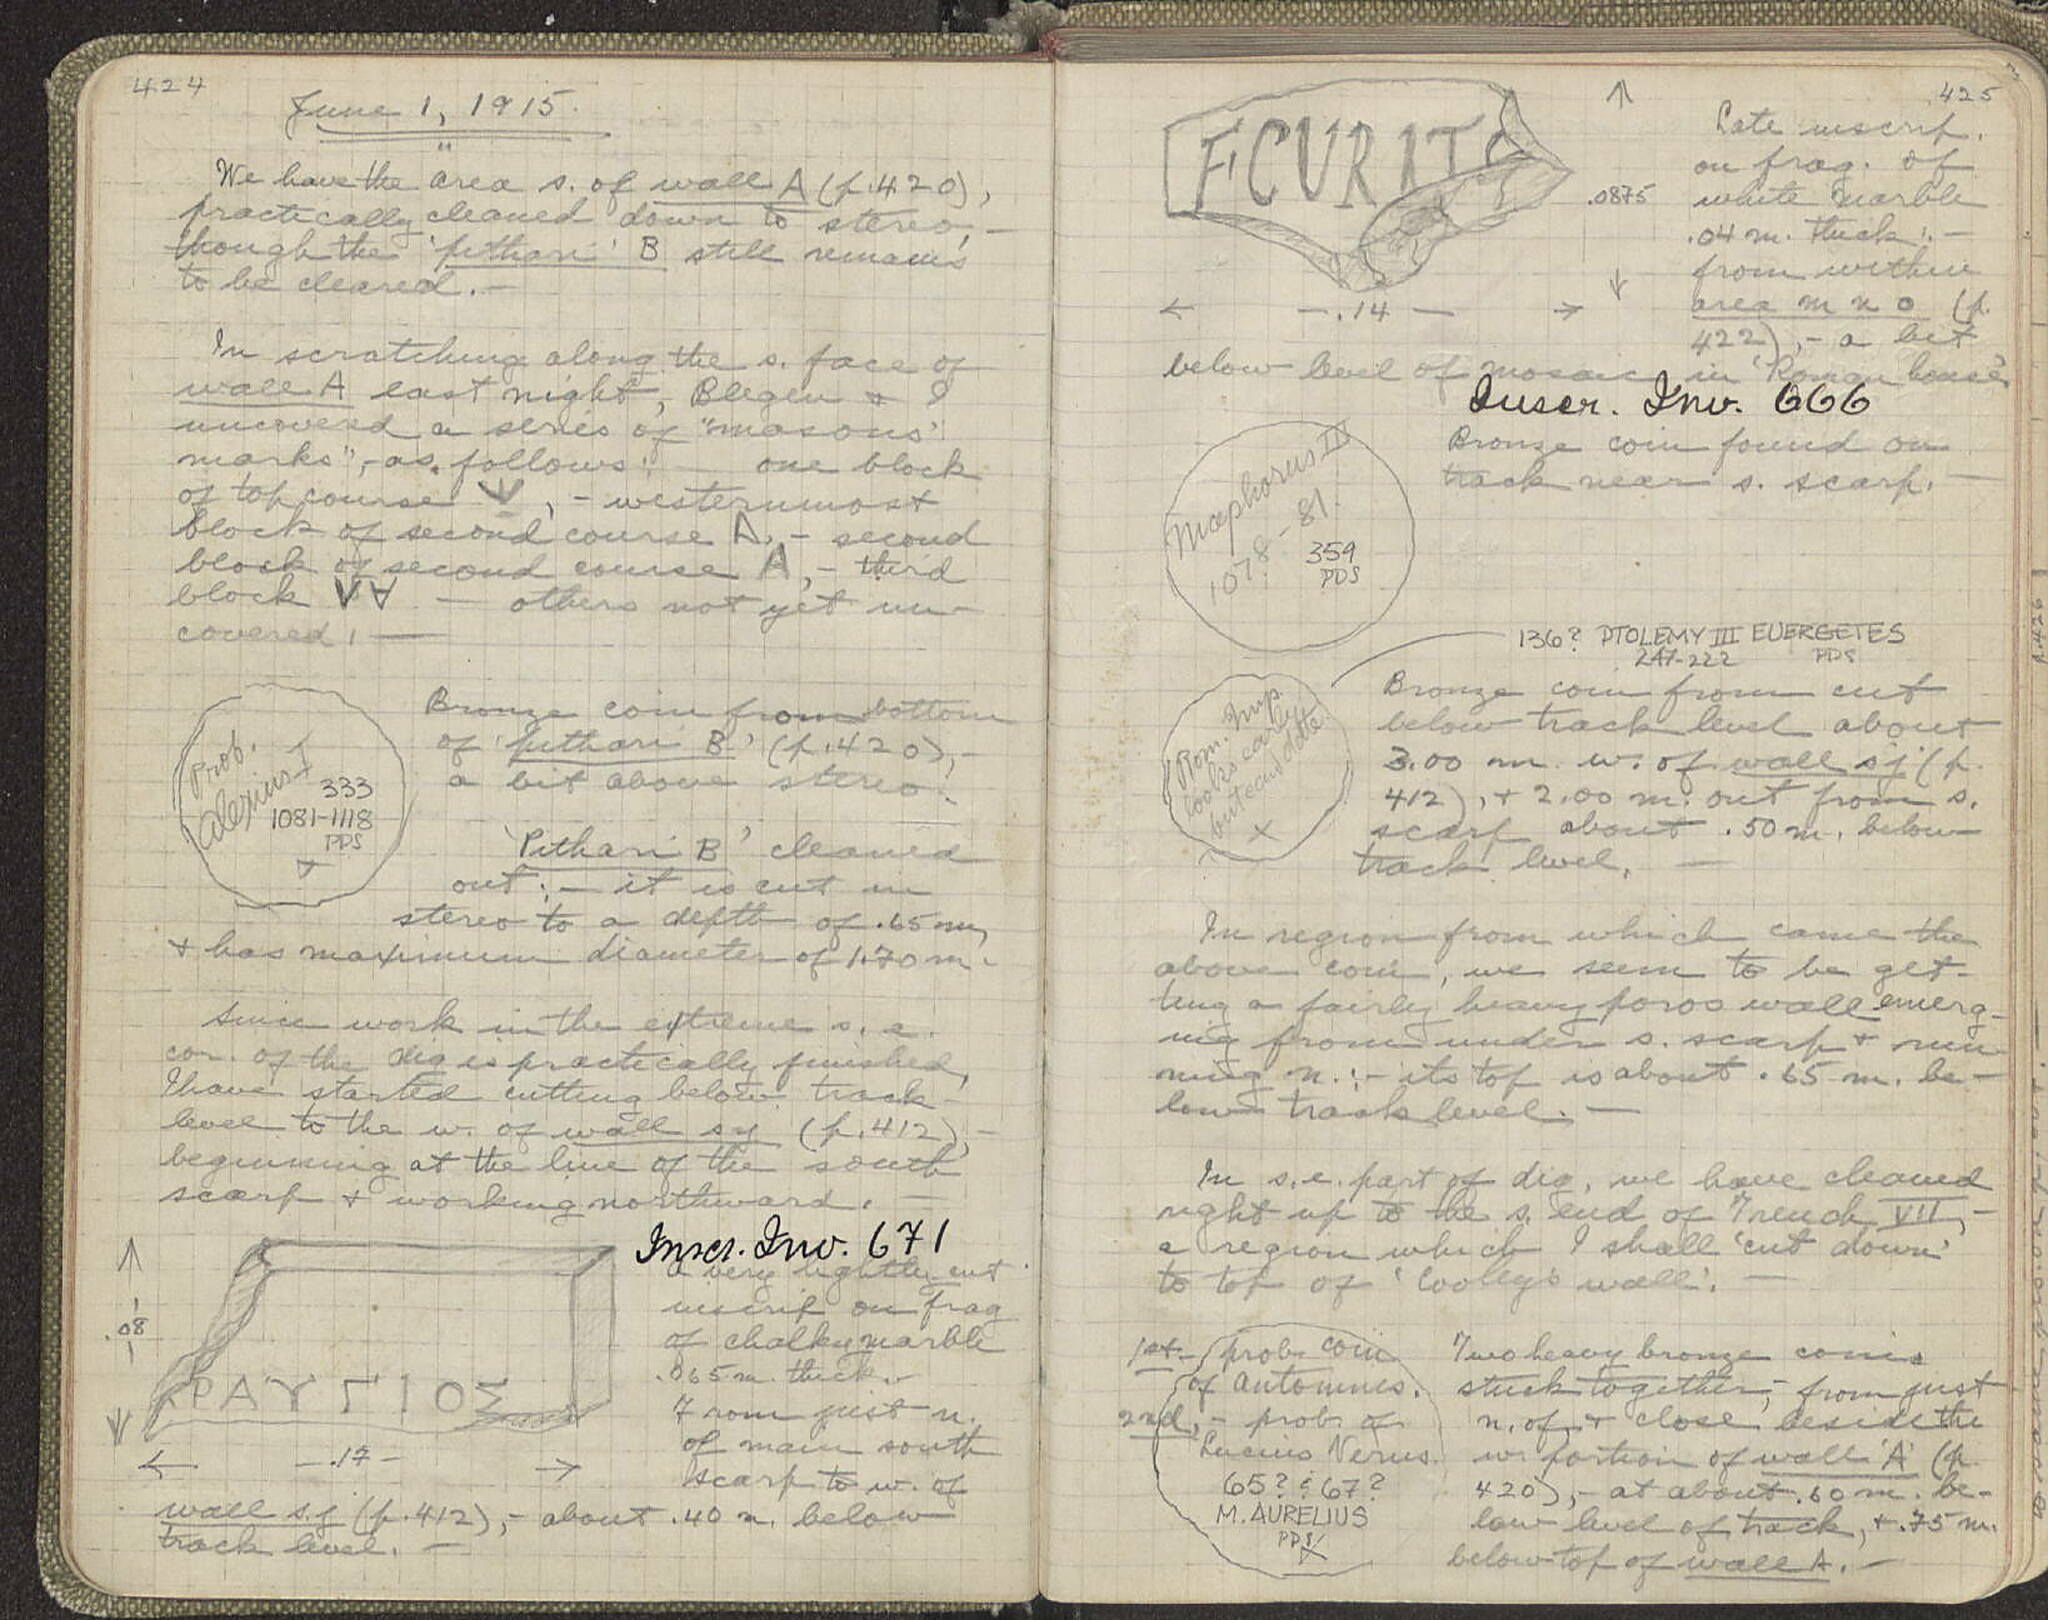 424
June 1, 1915.
"
We have the area s. of wall A (p. 420),
practically cleaned down to stereo, —
though the 'pithari' B still remains
to be cleared. —
In scratching along the s. face of
wall A last night, Blegen & I
uncovered a series of "masons'
marks", - as follows: — one block
of top course , - westernmost
block of second course A, - second
block of second course A, - third
block V∀ — others not yet un-
covered. —
Bronze coin from bottom
of 'pithari B' (p. 420), -
a bit above stereo.
Prob.
Alexius I
333
1081-1118
PDS
'Pithari B' cleaned
out: — it is cut in
stereo to a depth of .65 m,
& has maximum diameter of 1.70 m.
Since work in the extreme s. e.
cor. of the dig is practically finished,
I have started cutting below track
level to the w. of wall sj (p. 412), -
beginning at the line of the south
scarp & working northward. —
Inscr. Inv. 671
a very lightly cut
inscrip on frag
of chalky marble
.065 m. thick. -
From just n.
of main south
scarp to w. of
wall sj (p. 412), - about .40 m. below
track level. —
.08
ΡΑΥΓΙΟΣ
— .17 —
425
FCURIT
.0875
— .14 —
Late inscrip.
on frag. of
white marble
.04 m. thick: —
from within
area m n o (p.
422), - a bit
below level of mosaic in 'Roman house'
Inscr. Inv. 666
Bronze coin found on
track near s. scarp. —
Nicephorus III
1078 - 81.
359
PDS
136? PTOLEMY III EUERGETES
247-222 PDS
Bronze coin from cut
below track level about
3.00 m. w. of wall sj (p.
412), & 2.00 m. out from s.
scarp about .50 m. below
track level. —
Rom. Imp.
looks early
but cannot date
X
In region from which came the
above coin, we seem to be get-
ting a fairly heavy poros wall emerg-
ing from under s. scarp & run-
ning n.: - its top is about .65 m. be-
low track level. —
In s.e. part of dig, we have cleaned
right up to the s. end of Trench VII, -
a region which I shall 'cut down'
to top of 'Cooley's wall'. —
1st - prob. coin
of Antoninus.
2nd, - prob. of
Lucius Verus.
65? & 67?
M. AURELIUS
PDS
X
Two heavy bronze coins
stuck together, - from just
n. of, & close beside the
w. portion of wall 'A' (p.
420), - at about .60 m. be-
low level of track, & .75 m.
below top of wall A. —